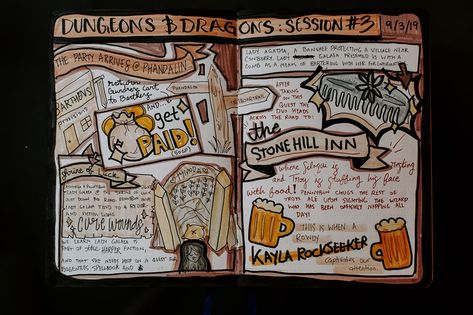 DUNGEONS & DRAGONS: SESSION #3
9/3/19
THE PARTY ARRIVES @ PHANDALIN
BARTHEN'S
PROVISIONS
cart
to Barthen's
PHANDALIN
AND...
get
PAID!
(50GP)
Shrine of Luck
GALAEA @ THE SHRINE OF LUCK
Cure wounds
WE LEARN LADY GALAEA IS
PART OF THE HARPER FACTION,
AND THAT SHE NEEDS HELP ON A QUEST FOR
SPELLBOOK AND
LADY AGATHA, A BANSHEE PROTECTING A VILLAGE NEAR
CONYBERRY. LADY GALAEA PRESENTED US WITH A
COMB AS A MEANS OF BARTERING WITH HER FOR INFORMATION
AFTER
TAKING
ON THIS
QUEST THE
DUO HEADS
ACROSS THE ROAD TO:
the
STONEHILL INN
Where is
and Troy is stuffing his face
with food! CHUGS THE REST OF
TROY'S ALE UPON SIGHTING THE WIZARD
WHO HAS BEEN NAPPING ALL
DAY!
THIS IS WHEN A
ROWDY
KAYLA ROCKSEEKER
captivates our
attention.